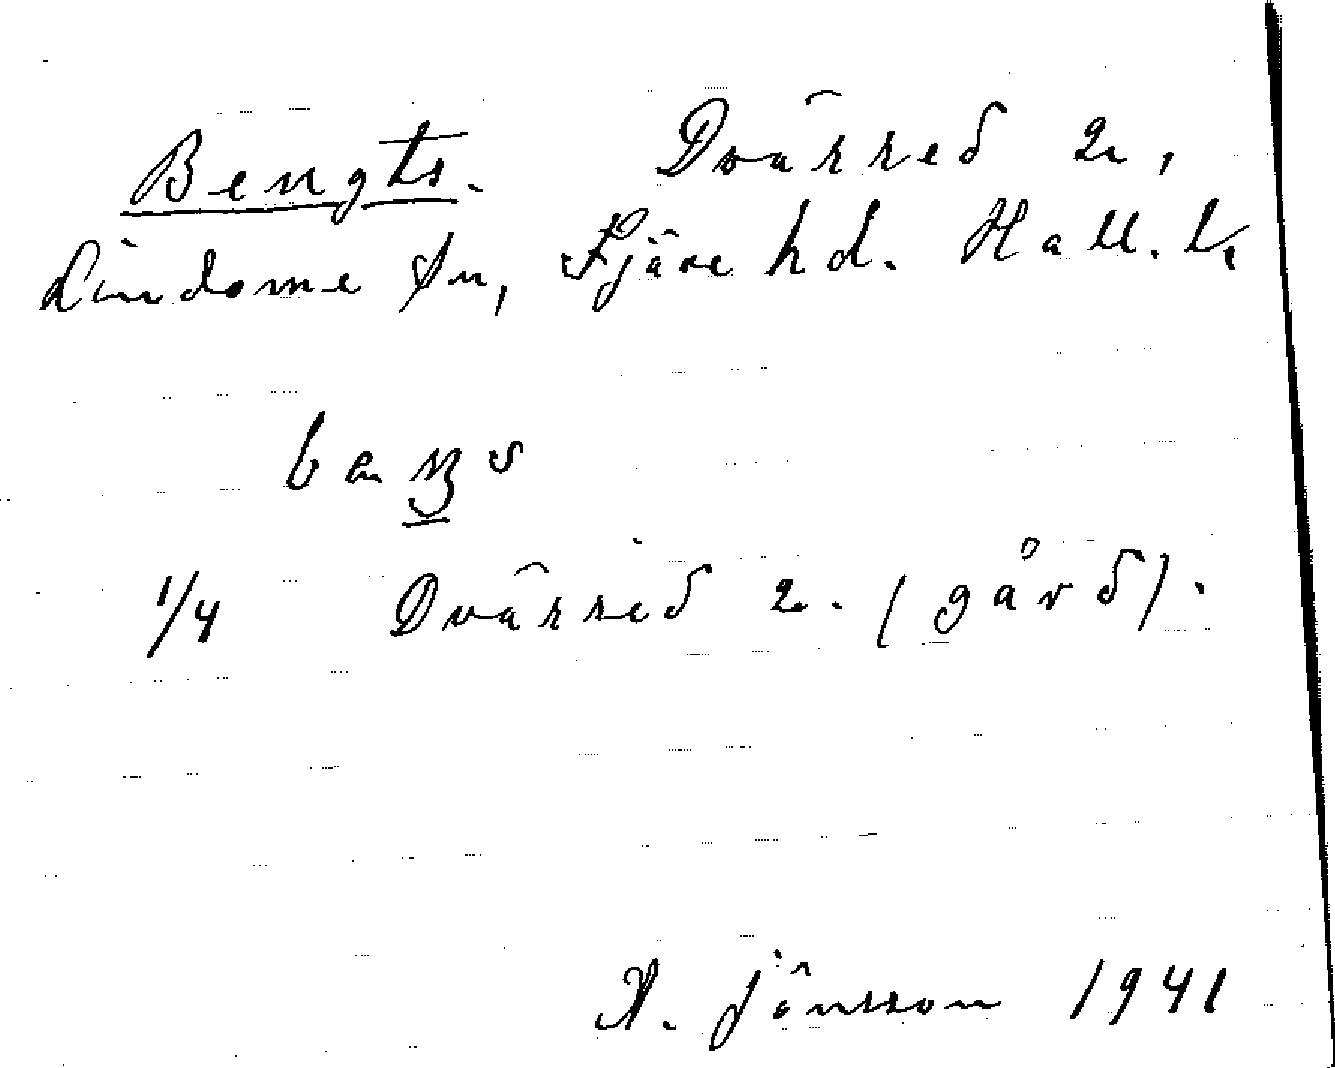 Bengts. Dvärred 2,
Lindome sn, Fjäre hd. Hall. l.
1/4 Dvärred 2. (gård).
A. Jönsson 1941